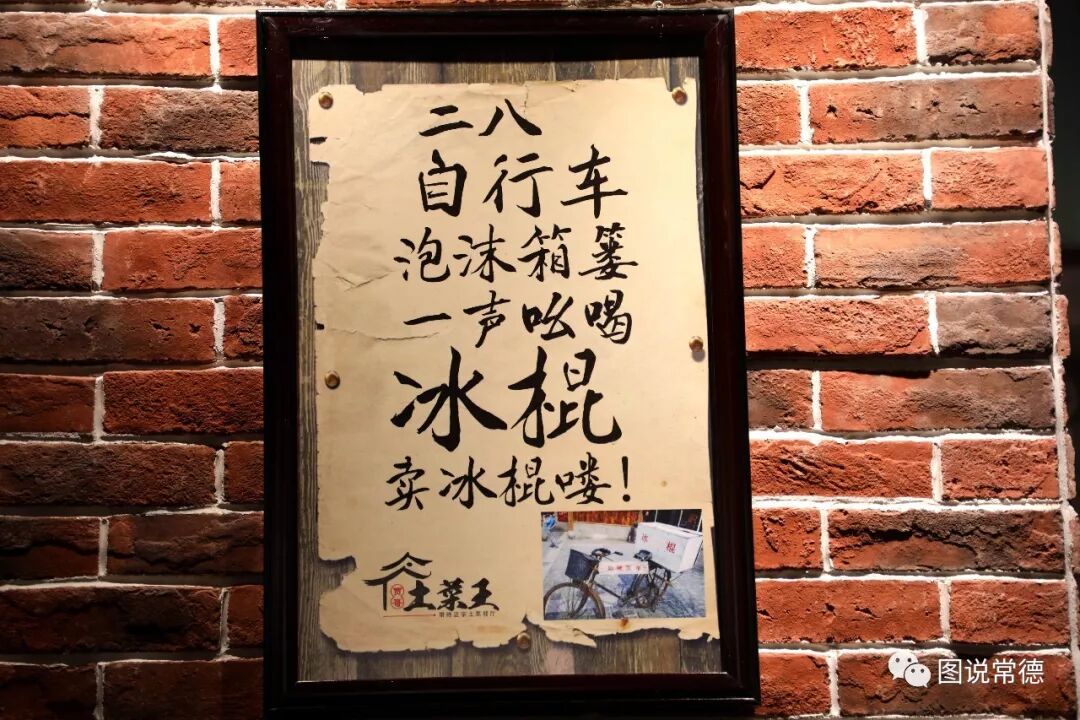 二八
自行车
泡沫箱篓
一声吆喝
冰棍
卖冰棍喽！
冰棍
土菜王
图说常德